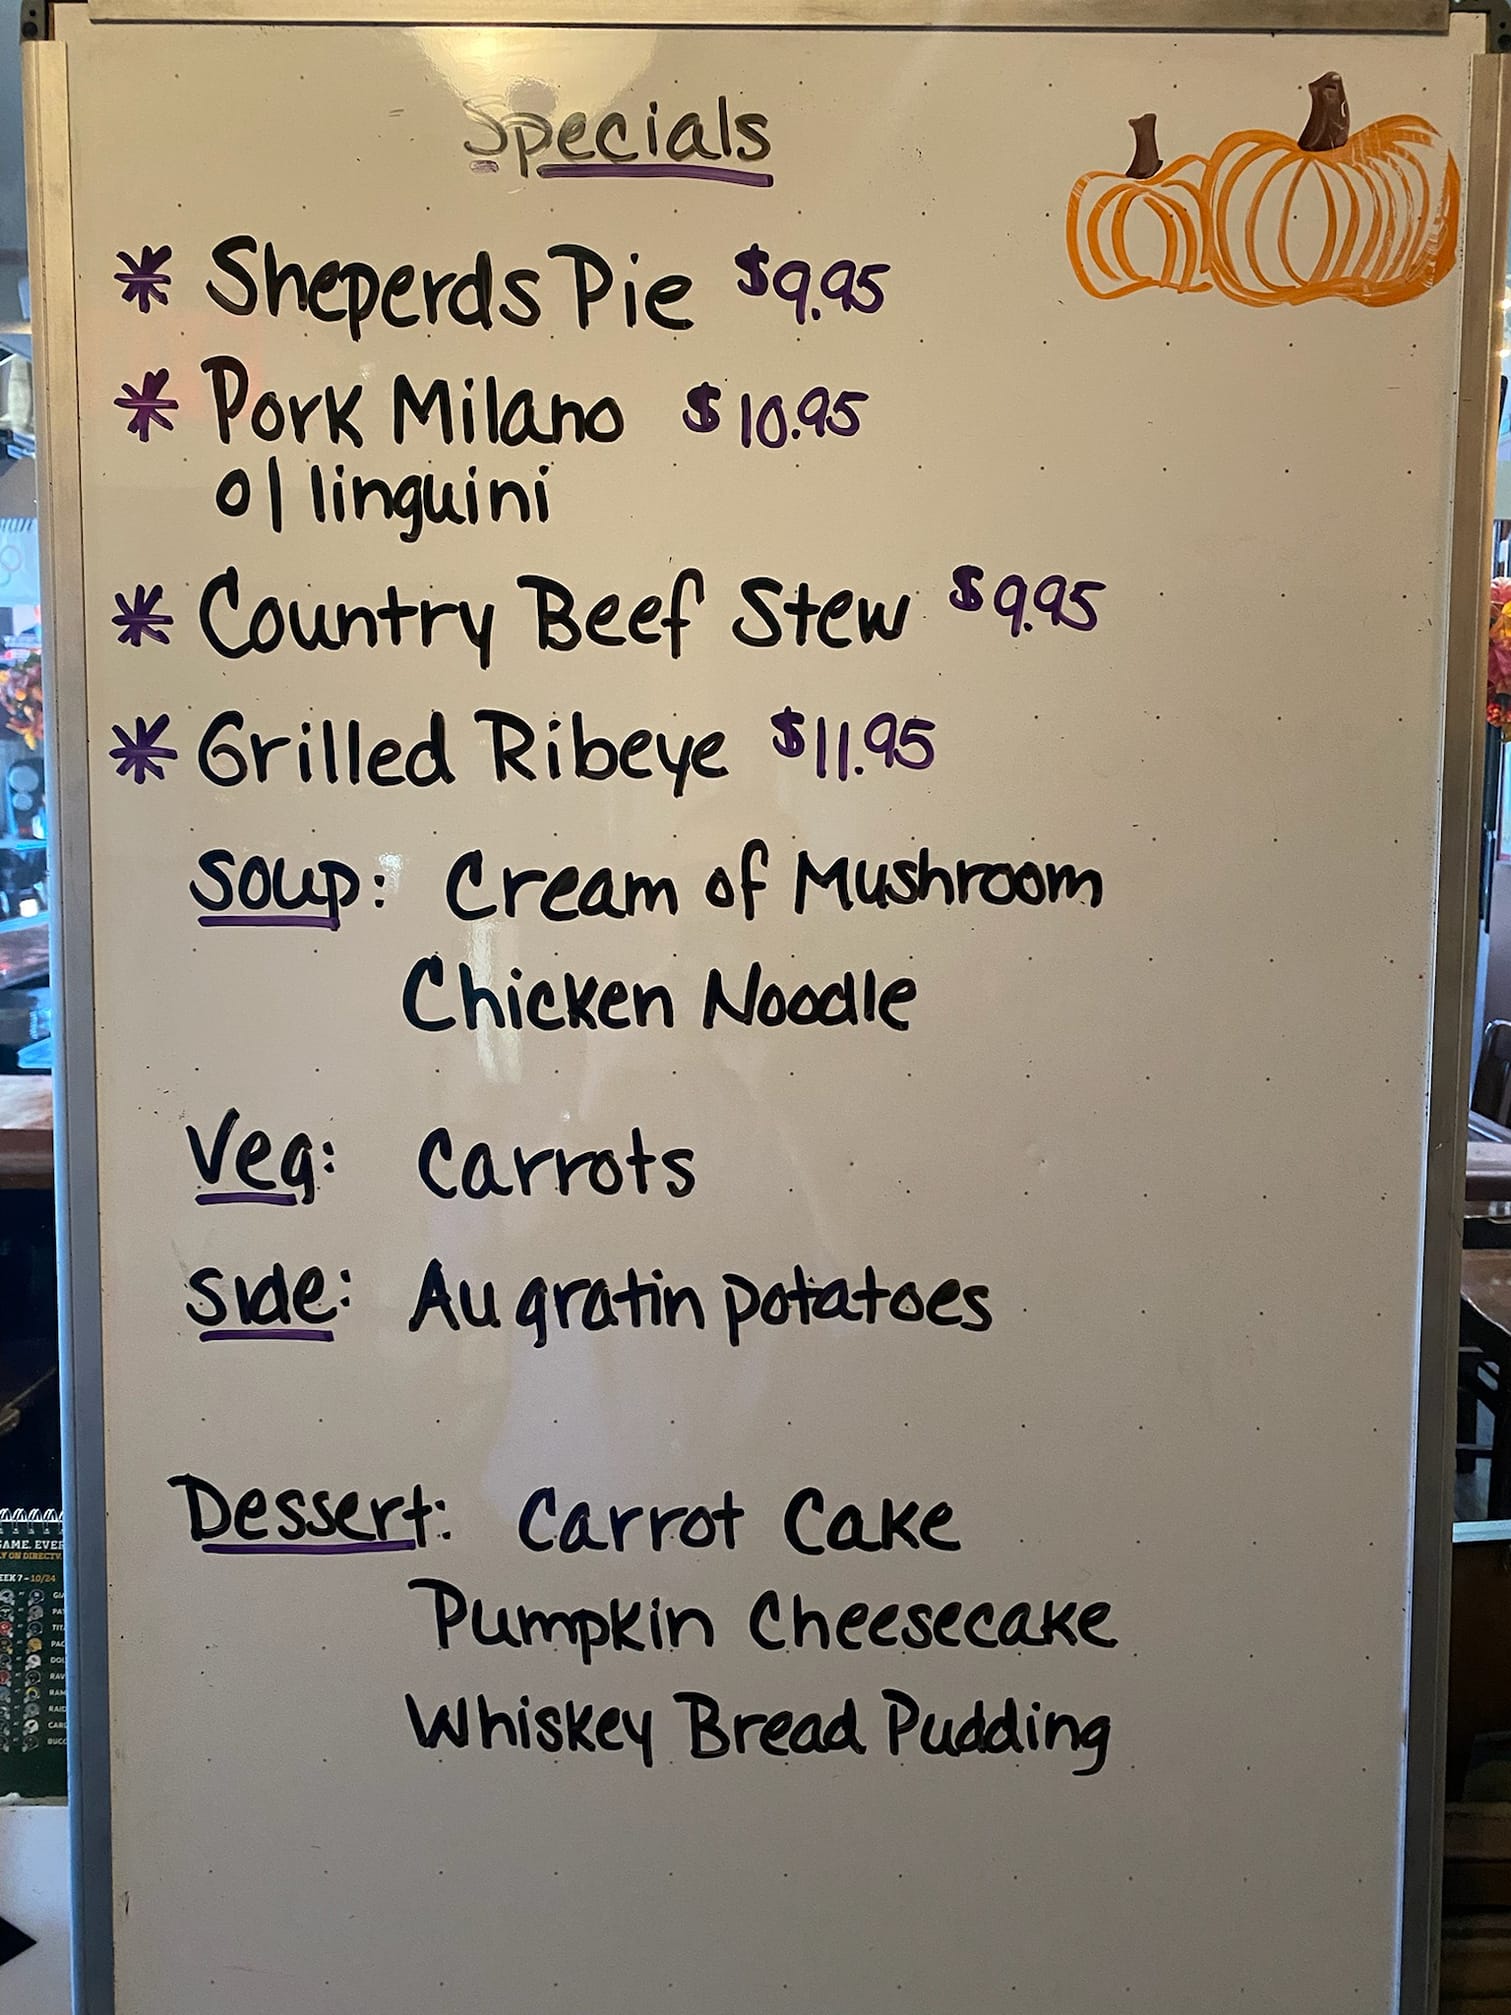 Specials
* Sheperds Pie $9.95
* Pork Milano $10.95
o/ linguini
* Country Beef Stew $9.95
* Grilled Ribeye $11.95
Soup: Cream of Mushroom
Chicken Noodle
Veg: Carrots
Side: Au gratin potatoes
Dessert: Carrot Cake
Pumpkin Cheesecake
Whiskey Bread Pudding
GAME. EVER
LY ON DIRECTV.
EEK 7 - 10/24
GIA
PAT
TIT
PAC
DOL
RAV
RAM
RAID
CARD
BUCC